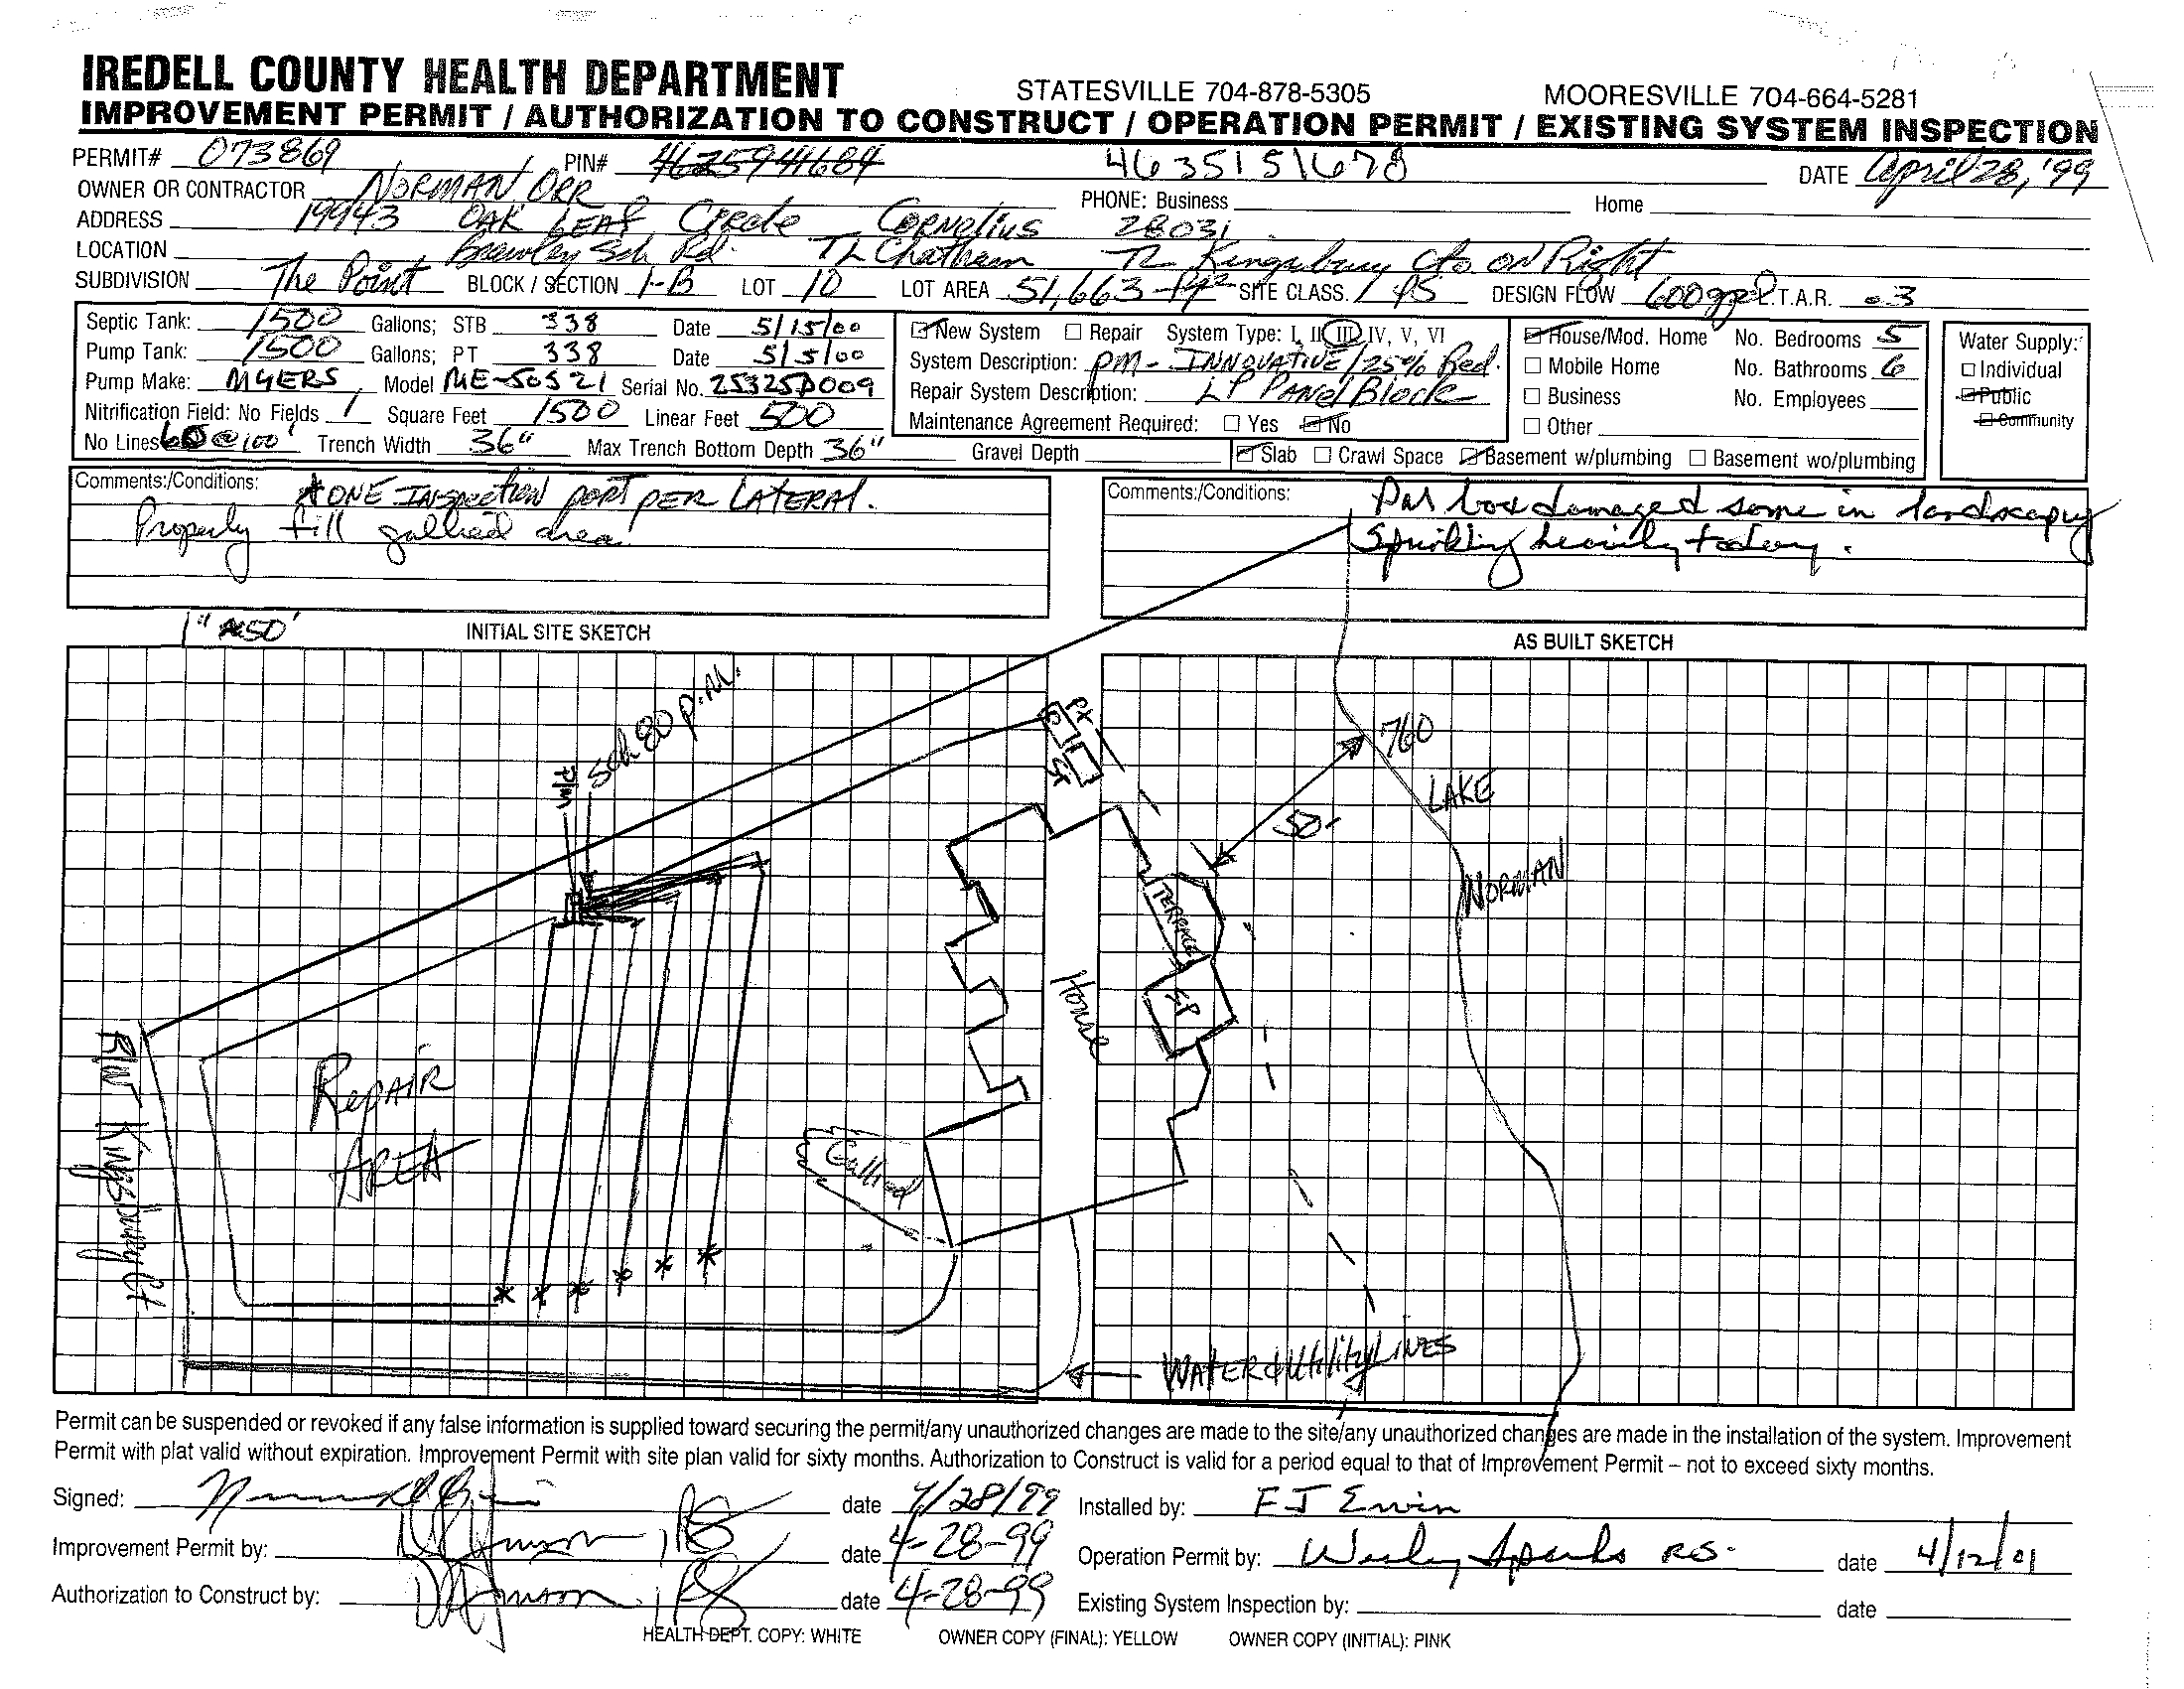 IREDELL COUNTY HEALTH DEPARTMENT STATESVILLE 704-878-5305 MOORESVILLE 704-664-5281
IMPROVEMENT PERMIT / AUTHORIZATION TO CONSTRUCT / OPERATION PERMIT / EXISTING SYSTEM INSPECTION
PERMIT# 073869 PIN# 4625941684 4635151678 DATE April 28, '99
OWNER OR CONTRACTOR NORMAN ORR PHONE: Business Home
ADDRESS 19943 OAK LEAF Circle Cornelius 28031
LOCATION Brawley Sch Rd. TL Chatham TR Kingsbury Ct. ON Right
SUBDIVISION The Point BLOCK / SECTION 1-B LOT 10 LOT AREA 51,663 ft² SITE CLASS. PS DESIGN FLOW 600gpd L.T.A.R. .3
Septic Tank: 1500 Gallons; STB 338 Date 5/15/00
Pump Tank: 1500 Gallons; PT 338 Date 5/5/00
Pump Make: MYERS Model ME-50S21 Serial No. 25325D009
Nitrification Field: No Fields 1 Square Feet 1500 Linear Feet 500
No Lines @ 100' Trench Width 36" Max Trench Bottom Depth 36" Gravel Depth
New System Repair System Type: I, II, III, IV, V, VI
System Description: PM - INNOVATIVE / 25% Red.
Repair System Description: LP Panel Block
Maintenance Agreement Required: Yes No
House/Mod. Home No. Bedrooms 5
Mobile Home No. Bathrooms 6
Business No. Employees
Other
Slab Crawl Space Basement w/plumbing Basement wo/plumbing
Water Supply:
Individual
Public
Community
Comments:/Conditions: * ONE INSPECTION PORT PER LATERAL.
Properly fill gullied area!
Comments:/Conditions: box damaged some in landscaping
Sprinkling heavily today.
1" = 50'
INITIAL SITE SKETCH
AS BUILT SKETCH
Sch 80 p.m.
PT
ST
760
LAKE
NORMAN
50'
TERRACE
SP
House
REPAIR
AREA
Gullied
R/W Kingsbury Ct
WATER & Utility LINES
Permit can be suspended or revoked if any false information is supplied toward securing the permit/any unauthorized changes are made to the site/any unauthorized changes are made in the installation of the system. Improvement
Permit with plat valid without expiration. Improvement Permit with site plan valid for sixty months. Authorization to Construct is valid for a period equal to that of Improvement Permit – not to exceed sixty months.
Signed: date 4/28/99 Installed by: F J Ervin
Improvement Permit by: , RS date 4-28-99 Operation Permit by: Wesley Sparks R.S. date 4/12/01
Authorization to Construct by: , RS date 4-28-99 Existing System Inspection by: date
HEALTH DEPT. COPY: WHITE OWNER COPY (FINAL): YELLOW OWNER COPY (INITIAL): PINK